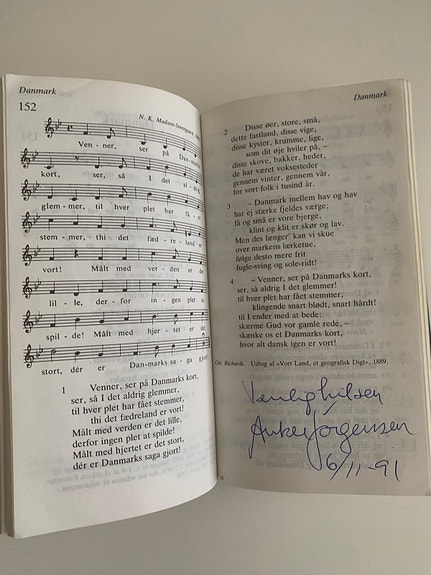 Danmark
152
N. K. Madsen-Stensgaard,
Ven - ner, ser på Dan-
kort, ser, så I det al-
glem-mer, til hver plet har få -
stem - mer, thi det fæd - re - land er
vort! Målt med ver - den er det
lil - le, der - for in - gen plet at
spil - de! Målt med hjer - tet er det
stort, dér er Dan-marks sa - ga gjort!
1 Venner, ser på Danmarks kort,
ser, så I det aldrig glemmer,
til hver plet har fået stemmer,
thi det fædreland er vort!
Målt med verden er det lille,
derfor ingen plet at spilde!
Målt med hjertet er det stort,
dér er Danmarks saga gjort!
Danmark
2 Disse øer, store, små,
dette fastland, disse vige,
disse kyster, krumme, lige,
som dit øje hviler på, –
disse skove, bakker, heder,
de har været voksesteder
gennem vinter, gennem vår,
for vort folk i tusind år.
3 – Danmark mellem hav og hav
har ej stærke fjeldes værge;
få og små er vore bjerge,
klint og klit er skør og lav.
Men des længer' kan vi skue
over markens lærketue,
følge desto mere frit
fugle-sving og sole-ridt!
4 – Venner, ser på Danmarks kort,
ser, så aldrig I det glemmer!
til hver plet har fået stemmer,
klingende snart blødt, snart hårdt!
til I ender med at bede:
skærme Gud vor gamle rede, –
skænke os et Danmarks kort,
hvor alt dansk igen er vort!
Chr. Richardt. Udtog af »Vort Land, et geografisk Digt«, 1889.
Venlig hilsen
Anker Jørgensen
6/11-91